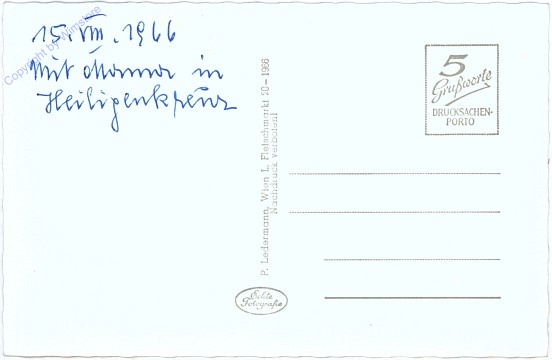 Copyright by Wimstore
15. VIII. 1966
Mit Mama in
Heiligenkreuz
P. Ledermann, Wien I., Fleischmarkt 20 – 1966
Nachdruck verboten!
5
Grußworte
DRUCKSACHEN-
PORTO
Echte
Fotografie